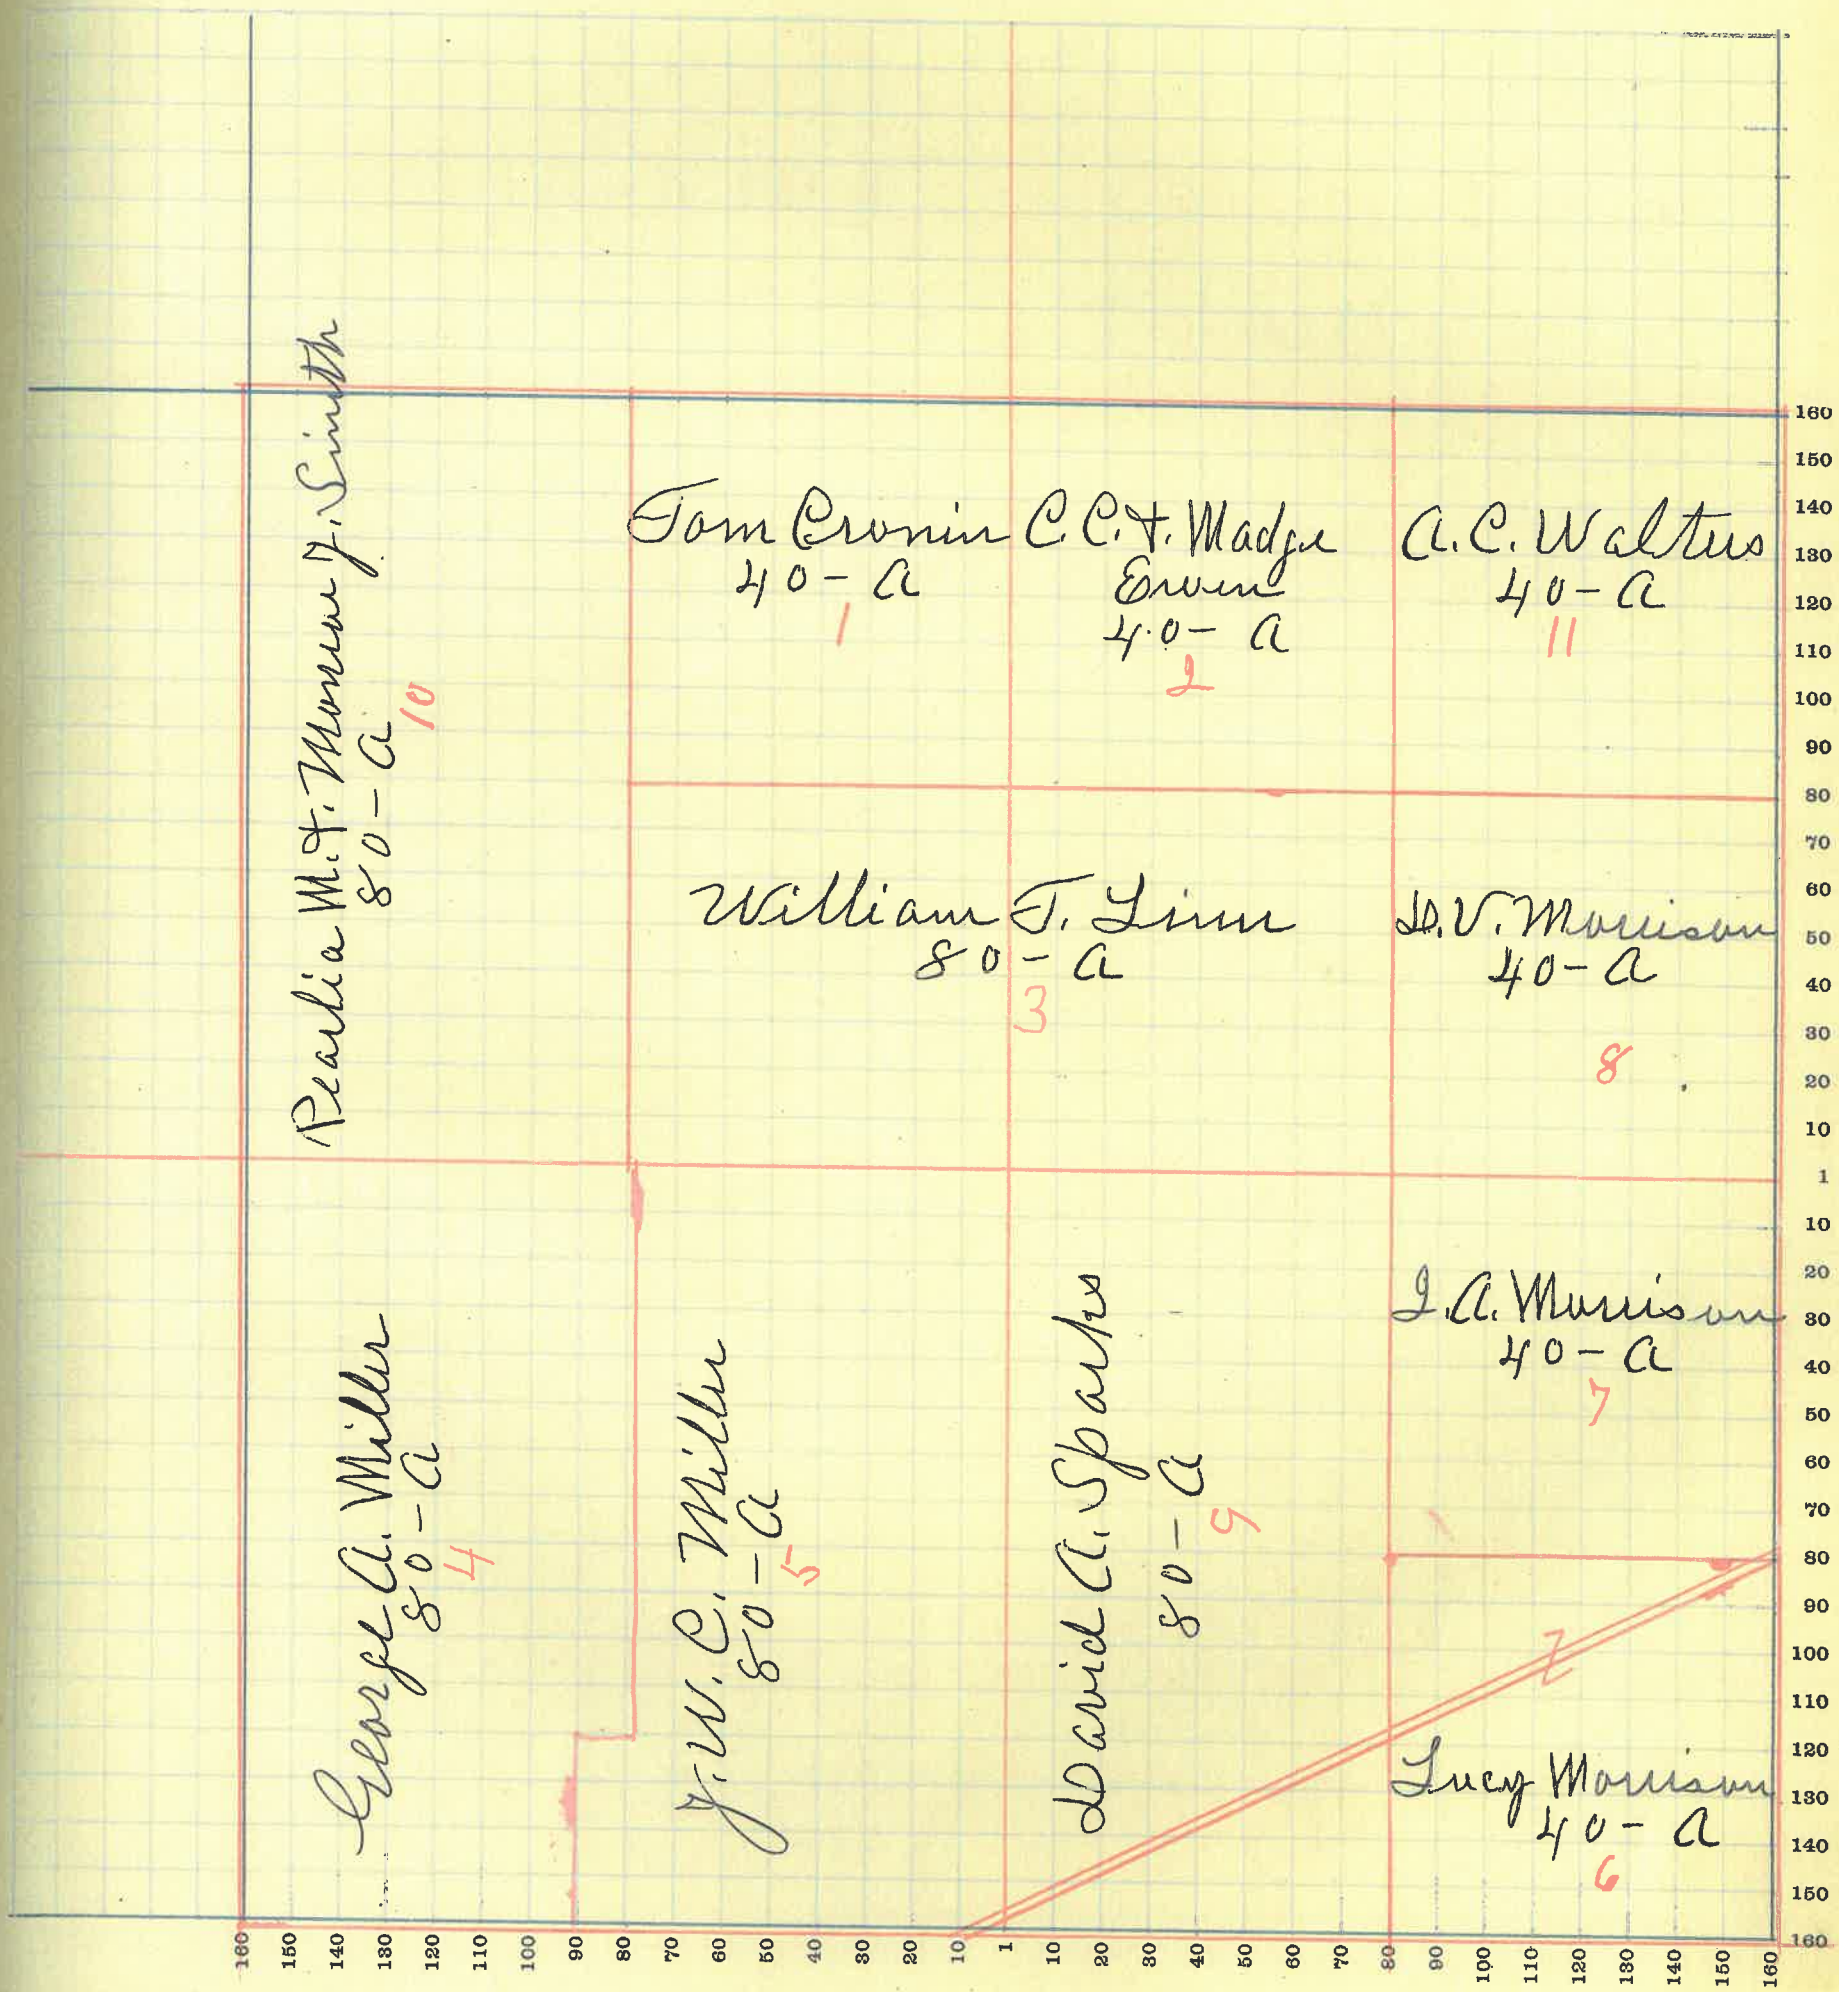 Pearlia M. & Monroe J. Smith
80 - A
10
Tom Cronin
40 - A
1
C.C. & Madge
Erwin
40 - A
2
A.C. Walters
40 - A
11
William T. Linn
80 - A
3
D.V. Morrison
40 - A
8
George A. Miller
80 - A
4
J.W.C. Miller
80 - A
5
David A. Sparks
80 - A
9
I.A. Morrison
40 - A
7
Lucy Morrison
40 - A
6
160
150
140
130
120
110
100
90
80
70
60
50
40
30
20
10
1
10
20
30
40
50
60
70
80
90
100
110
120
130
140
150
160
160 150 140 130 120 110 100 90 80 70 60 50 40 30 20 10 1 10 20 30 40 50 60 70 80 90 100 110 120 130 140 150 160